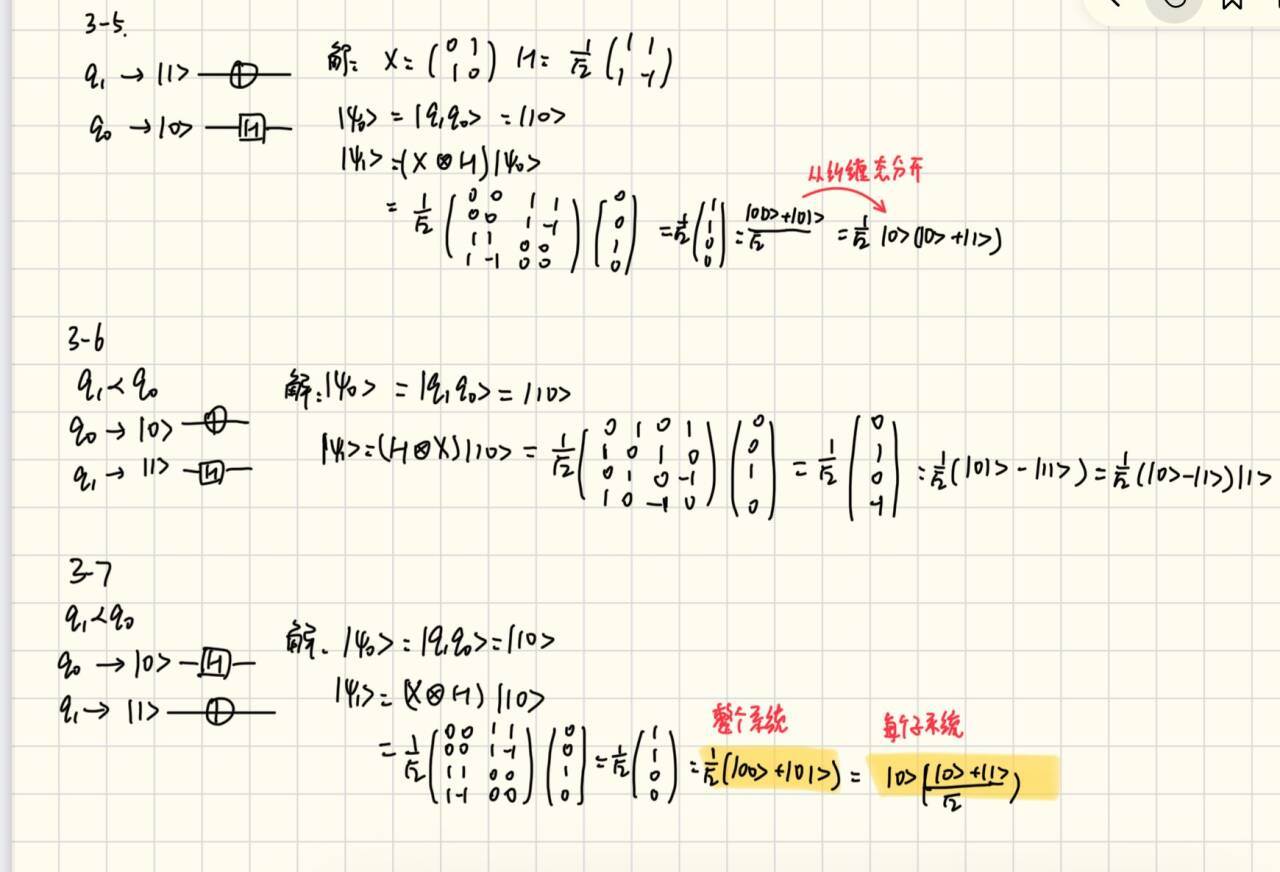 3-5.
q₁ → |1> ─⊕─
q₀ → |0> ─[H]─
解: X = (0 1; 1 0) H = 1/√2 (1 1; 1 -1)
|ψ₀> = |q₁q₀> = |10>
|ψ₁> = (X⊗H)|ψ₀>
从纠缠态分开
= 1/√2 (0 0 1 1; 0 0 1 -1; 1 1 0 0; 1 -1 0 0) (0; 0; 1; 0) = 1/√2 (1; 1; 0; 0) = |00>+|01>/√2 = 1/√2 |0>(|0>+|1>)
3-6
q₁<q₀
q₀ → |0> ─⊕─
q₁ → |1> ─[H]─
解: |ψ₀> = |q₁q₀> = |10>
|ψ₁> = (H⊗X)|10> = 1/√2 (0 1 0 1; 1 0 1 0; 0 1 0 -1; 1 0 -1 0) (0; 0; 1; 0) = 1/√2 (0; 1; 0; -1) = 1/√2 (|01> - |11>) = 1/√2 (|0>-|1>)|1>
3-7
q₁<q₀
q₀ → |0> ─[H]─
q₁ → |1> ─⊕─
解. |ψ₀> = |q₁q₀> = |10>
|ψ₁> = (X⊗H)|10>
整个系统
每个子系统
= 1/√2 (0 0 1 1; 0 0 1 -1; 1 1 0 0; 1 -1 0 0) (0; 0; 1; 0) = 1/√2 (1; 1; 0; 0) = 1/√2 (|00>+|01>) = |0>(|0>+|1>/√2)